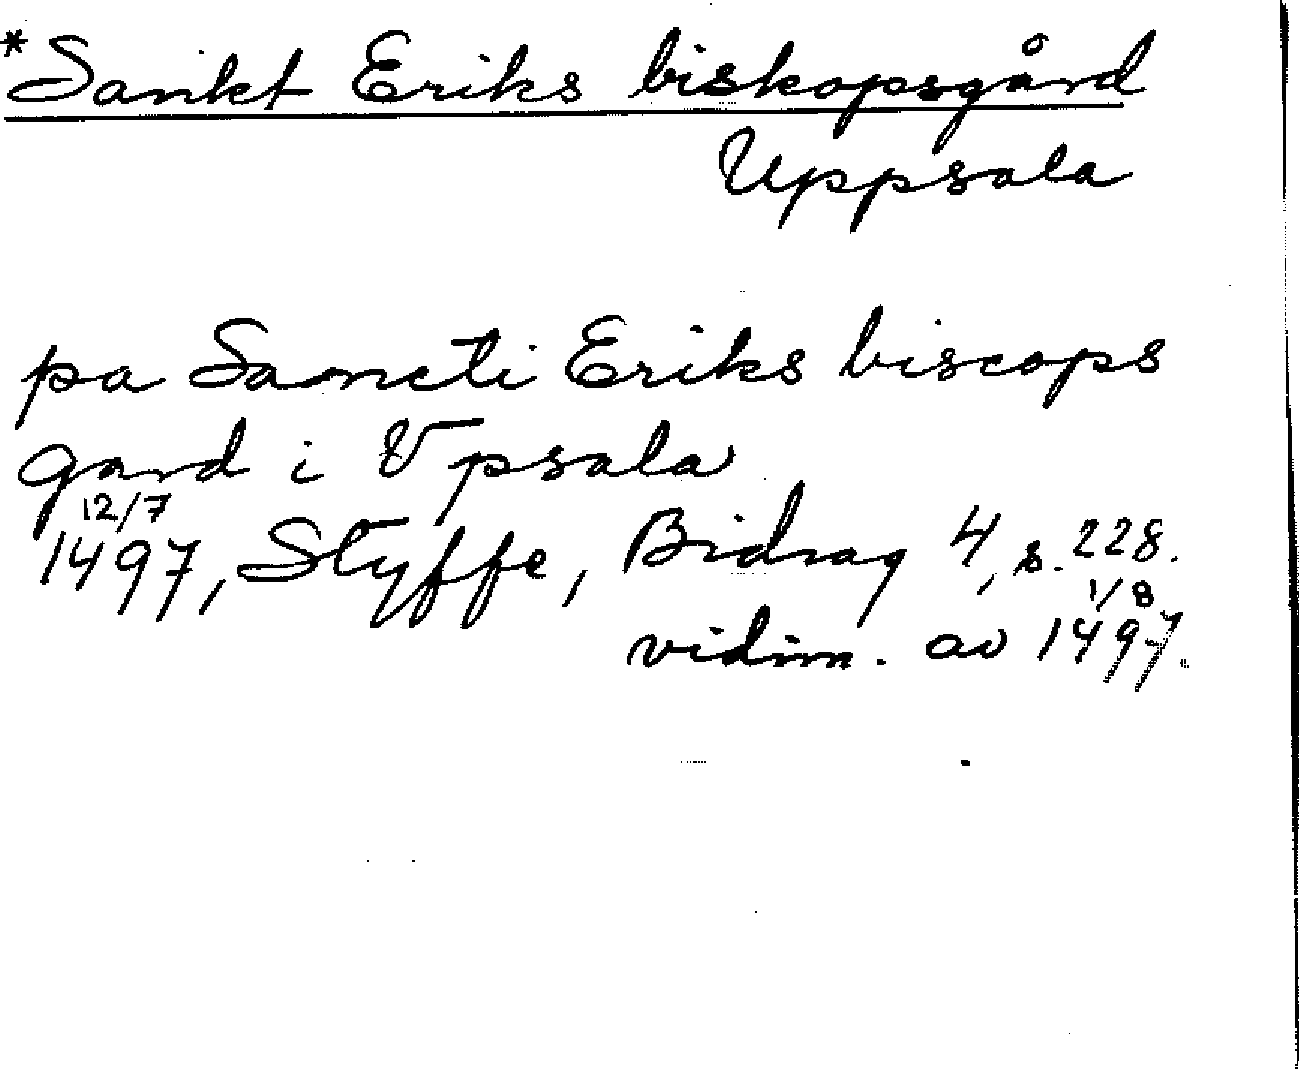 *Sankt Eriks biskopsgård
Uppsala
pa Sancti Eriks biscops
gard i Vpsala
12/7
1497, Styffe, Bidrag 4, s. 228.
1/8
vidim. av 1497.